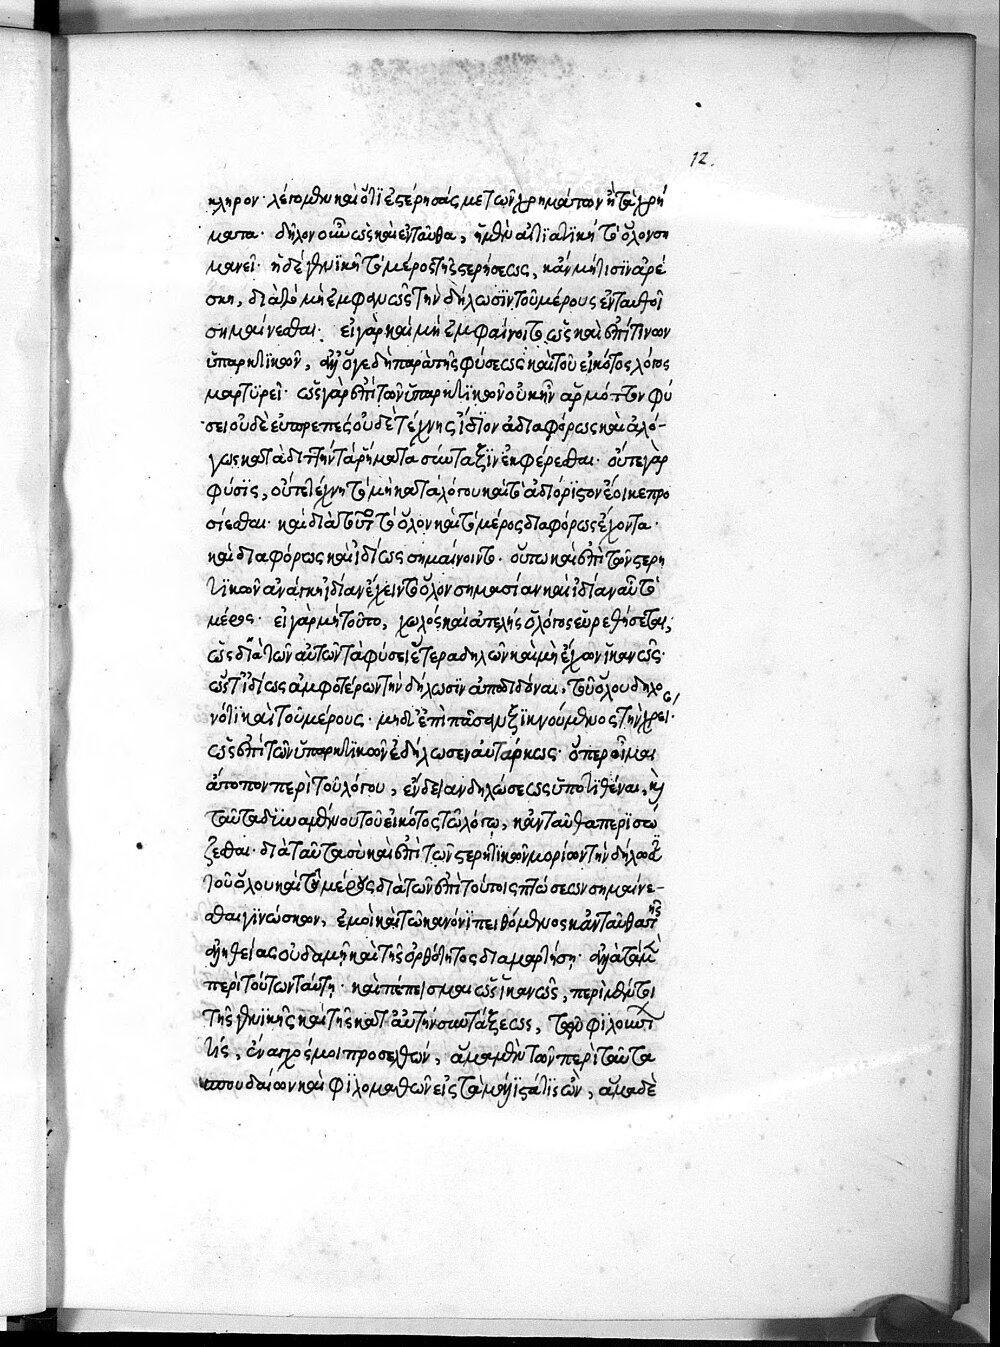 12.
κλῆρον· λέγομεν καὶ ὅτι ἐστέρησάς με τῶν χρημάτων ἢ τὰ χρή
ματα· δῆλον οὖν ὡς καὶ ἐνταῦθα, ἡ μὲν αἰτιατικὴ τὸ ὅλον ση
μανεῖ· ἡ δὲ γενικὴ τὸ μέρος τῆς στερήσεως, κἂν μή τισιν ἀρέ
σκῃ, διὰ τὸ μὴ ἐμφανῶς τὴν δήλωσιν τοῦ μέρους ἐνταυθοῖ
σημαίνεσθαι· εἰ γὰρ καὶ μὴ ἐμφαίνοιτο ὡς καὶ ἐπί τινων
ὑπαρκτικῶν, ἀλλ' ὅγε δὴ παρὰ τῆς φύσεως καὶ τοῦ εἰκότος λόγος
μαρτυρεῖ· ὡς γὰρ ἐπὶ τῶν ὑπαρκτικῶν οὐκ ἦν ἁρμόττον φύ
σει οὐδὲ εὐπρεπὲς οὐδὲ τέχνης ἴδιον ἀδιαφόρως καὶ ἀλό-
γως κατὰ διττὴν τὰ ῥήματα σύνταξιν ἐκφέρεσθαι· οὔτε γὰρ
φύσις, οὔτε τέχνη τὸ μὴ κατὰ λόγου καὶ τὸ ἀδιόριστον ἔοικε προ
σίεσθαι· καὶ διὰ τοῦτο τὸ ὅλον καὶ τὸ μέρος διαφόρως ἔχοντα·
καὶ διαφόρως καὶ ἰδίως σημαίνοιντο· οὕτω καὶ ἐπὶ τῶν στερη
τικῶν ἀνάγκη ἰδίαν ἔχειν τὸ ὅλον σημασίαν καὶ ἰδίαν αὖ τὸ
μέρος· εἰ γὰρ μὴ τοῦτο, χωλὸς καὶ ἀτελὴς ὁ λόγος εὑρεθήσεται,
ὡς διὰ τῶν αὐτῶν τὰ φύσει ἕτερα δηλῶν καὶ μὴ ἔχων ἱκανῶς·
ὥστ' ἰδίως ἀμφοτέρων τὴν δήλωσιν ἀποδιδόναι, τοῦ ὅλου δηλο
νότι καὶ τοῦ μέρους· μηδ' ἐπὶ πᾶσαν ἐξικνούμενος τὴν χρεί·
ὡς ἐπὶ τῶν ὑπαρκτικῶν ἐδήλωσεν αὐτάρκως· ὅπερ οἶμαι
ἄτοπον περὶ τοῦ λόγου, ἔνδειαν δηλώσεως ὑποτιθέναι, κὶ
ταῦτα δϊωαμένου τοῦ εἰκότος τῶ λόγω, κἀνταῦθα περισώ
ζεσθαι· διὰ ταῦτα σὺ καὶ ἐπὶ τῶν στερητικῶν μορίων τὴν δήλωσιν
τοῦ ὅλου καὶ τοῦ μέρους διὰ τῶν ἐπὶ τούτοις πτώσεων σημαίνε-
σθαι γίνωσκων, ἐμοὶ καὶ τῶ κανόνι πειθόμενος κἀνταῦθα τῆς
ἀληθείας οὐδαμῆ καὶ τῆς ὀρθότητος διαμαρτήσῃ· ἀλλὰ τὰ μὲν
περὶ τούτων ταύτῃ· καὶ πέπεισμαι ὡς ἱκανῶς, περὶ μέντοι
τῆς γενικῆς καὶ τῆς κατ' αὐτὴν συντάξεως, τῶν φίλων τις
τις, ἔναγχός μοι προσελθών, ἅμα μὲν τῶν περὶ ταῦτα
σπουδαίων καὶ φιλομαθῶν εἰς τὰ μάλιστά τις ὤν, ἅμα δὲ